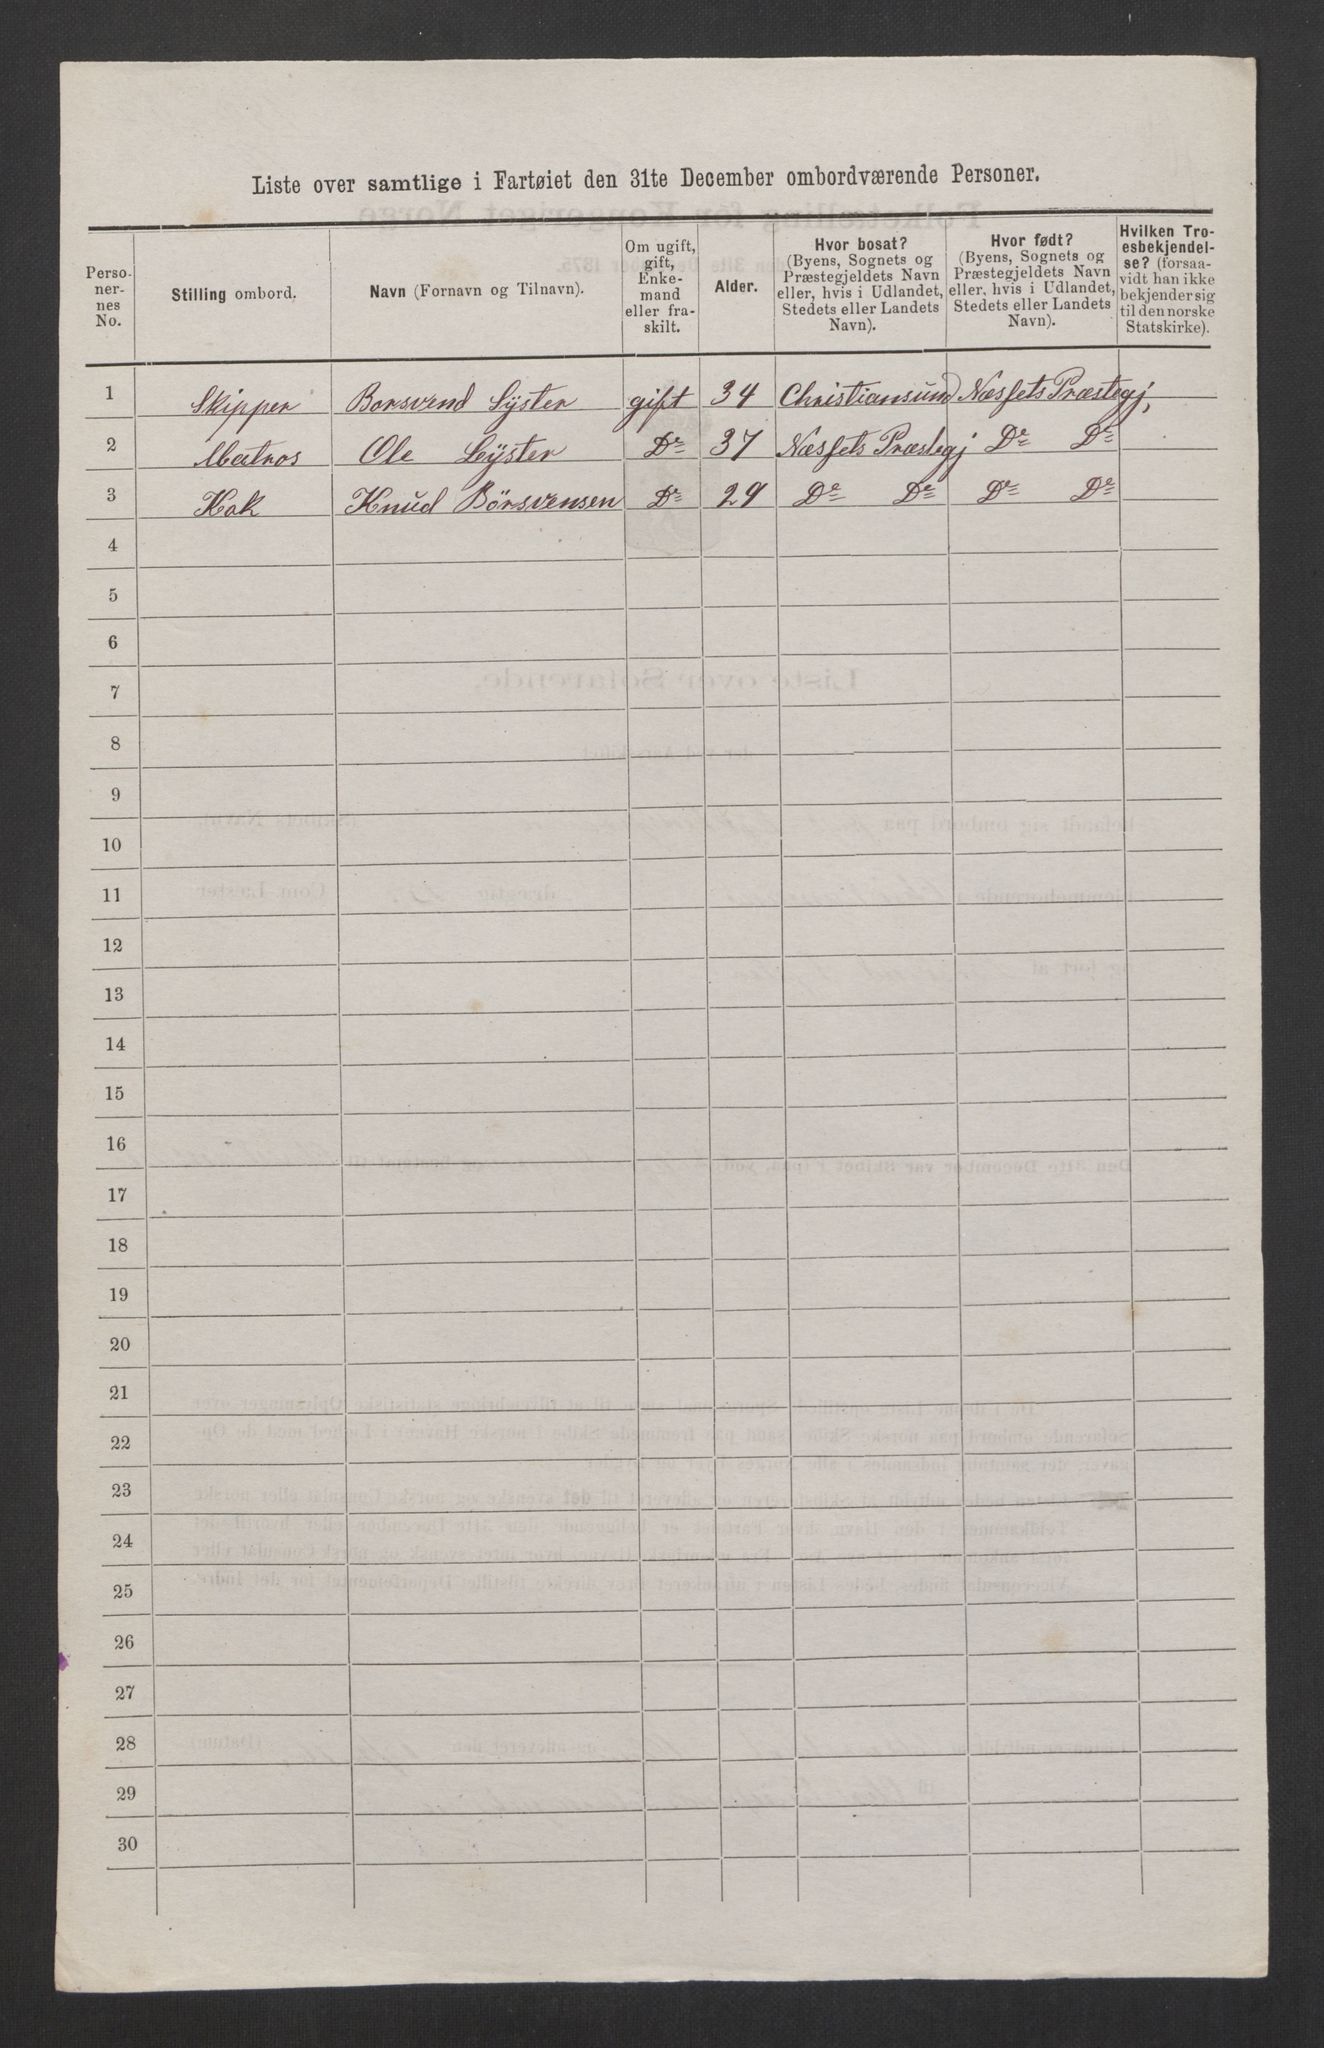 Liste over samtlige i Fartøiet den 31te December ombordværende Personer.
Perso-
ner-
nes
No.
Stilling ombord.
Navn (Fornavn og Tilnavn).
Om ugift,
gift,
Enke-
mand
eller fra-
skilt.
Alder.
Hvor bosat?
(Byens, Sognets og
Præstegjeldets Navn
eller, hvis i Udlandet,
Stedets eller Landets
Navn).
Hvor født?
(Byens, Sognets og
Præstegjeldets Navn
eller, hvis i Udlandet,
Stedets eller Landets
Navn).
Hvilken Tro-
esbekjendel-
se? (forsaa-
vidt han ikke
bekjender sig
til den norske
Statskirke).
1 Skipper Borsvend Lÿster gift 34 Christiansund Næssets Præstegj,
2 Matros Ole Lÿster Do 37 Næssets Præstegj Do Do
3 Kok Knud Börsvensen Do 29 Do Do Do Do
4
5
6
7
8
9
10
11
12
13
14
15
16
17
18
19
20
21
22
23
24
25
26
27
28
29
30